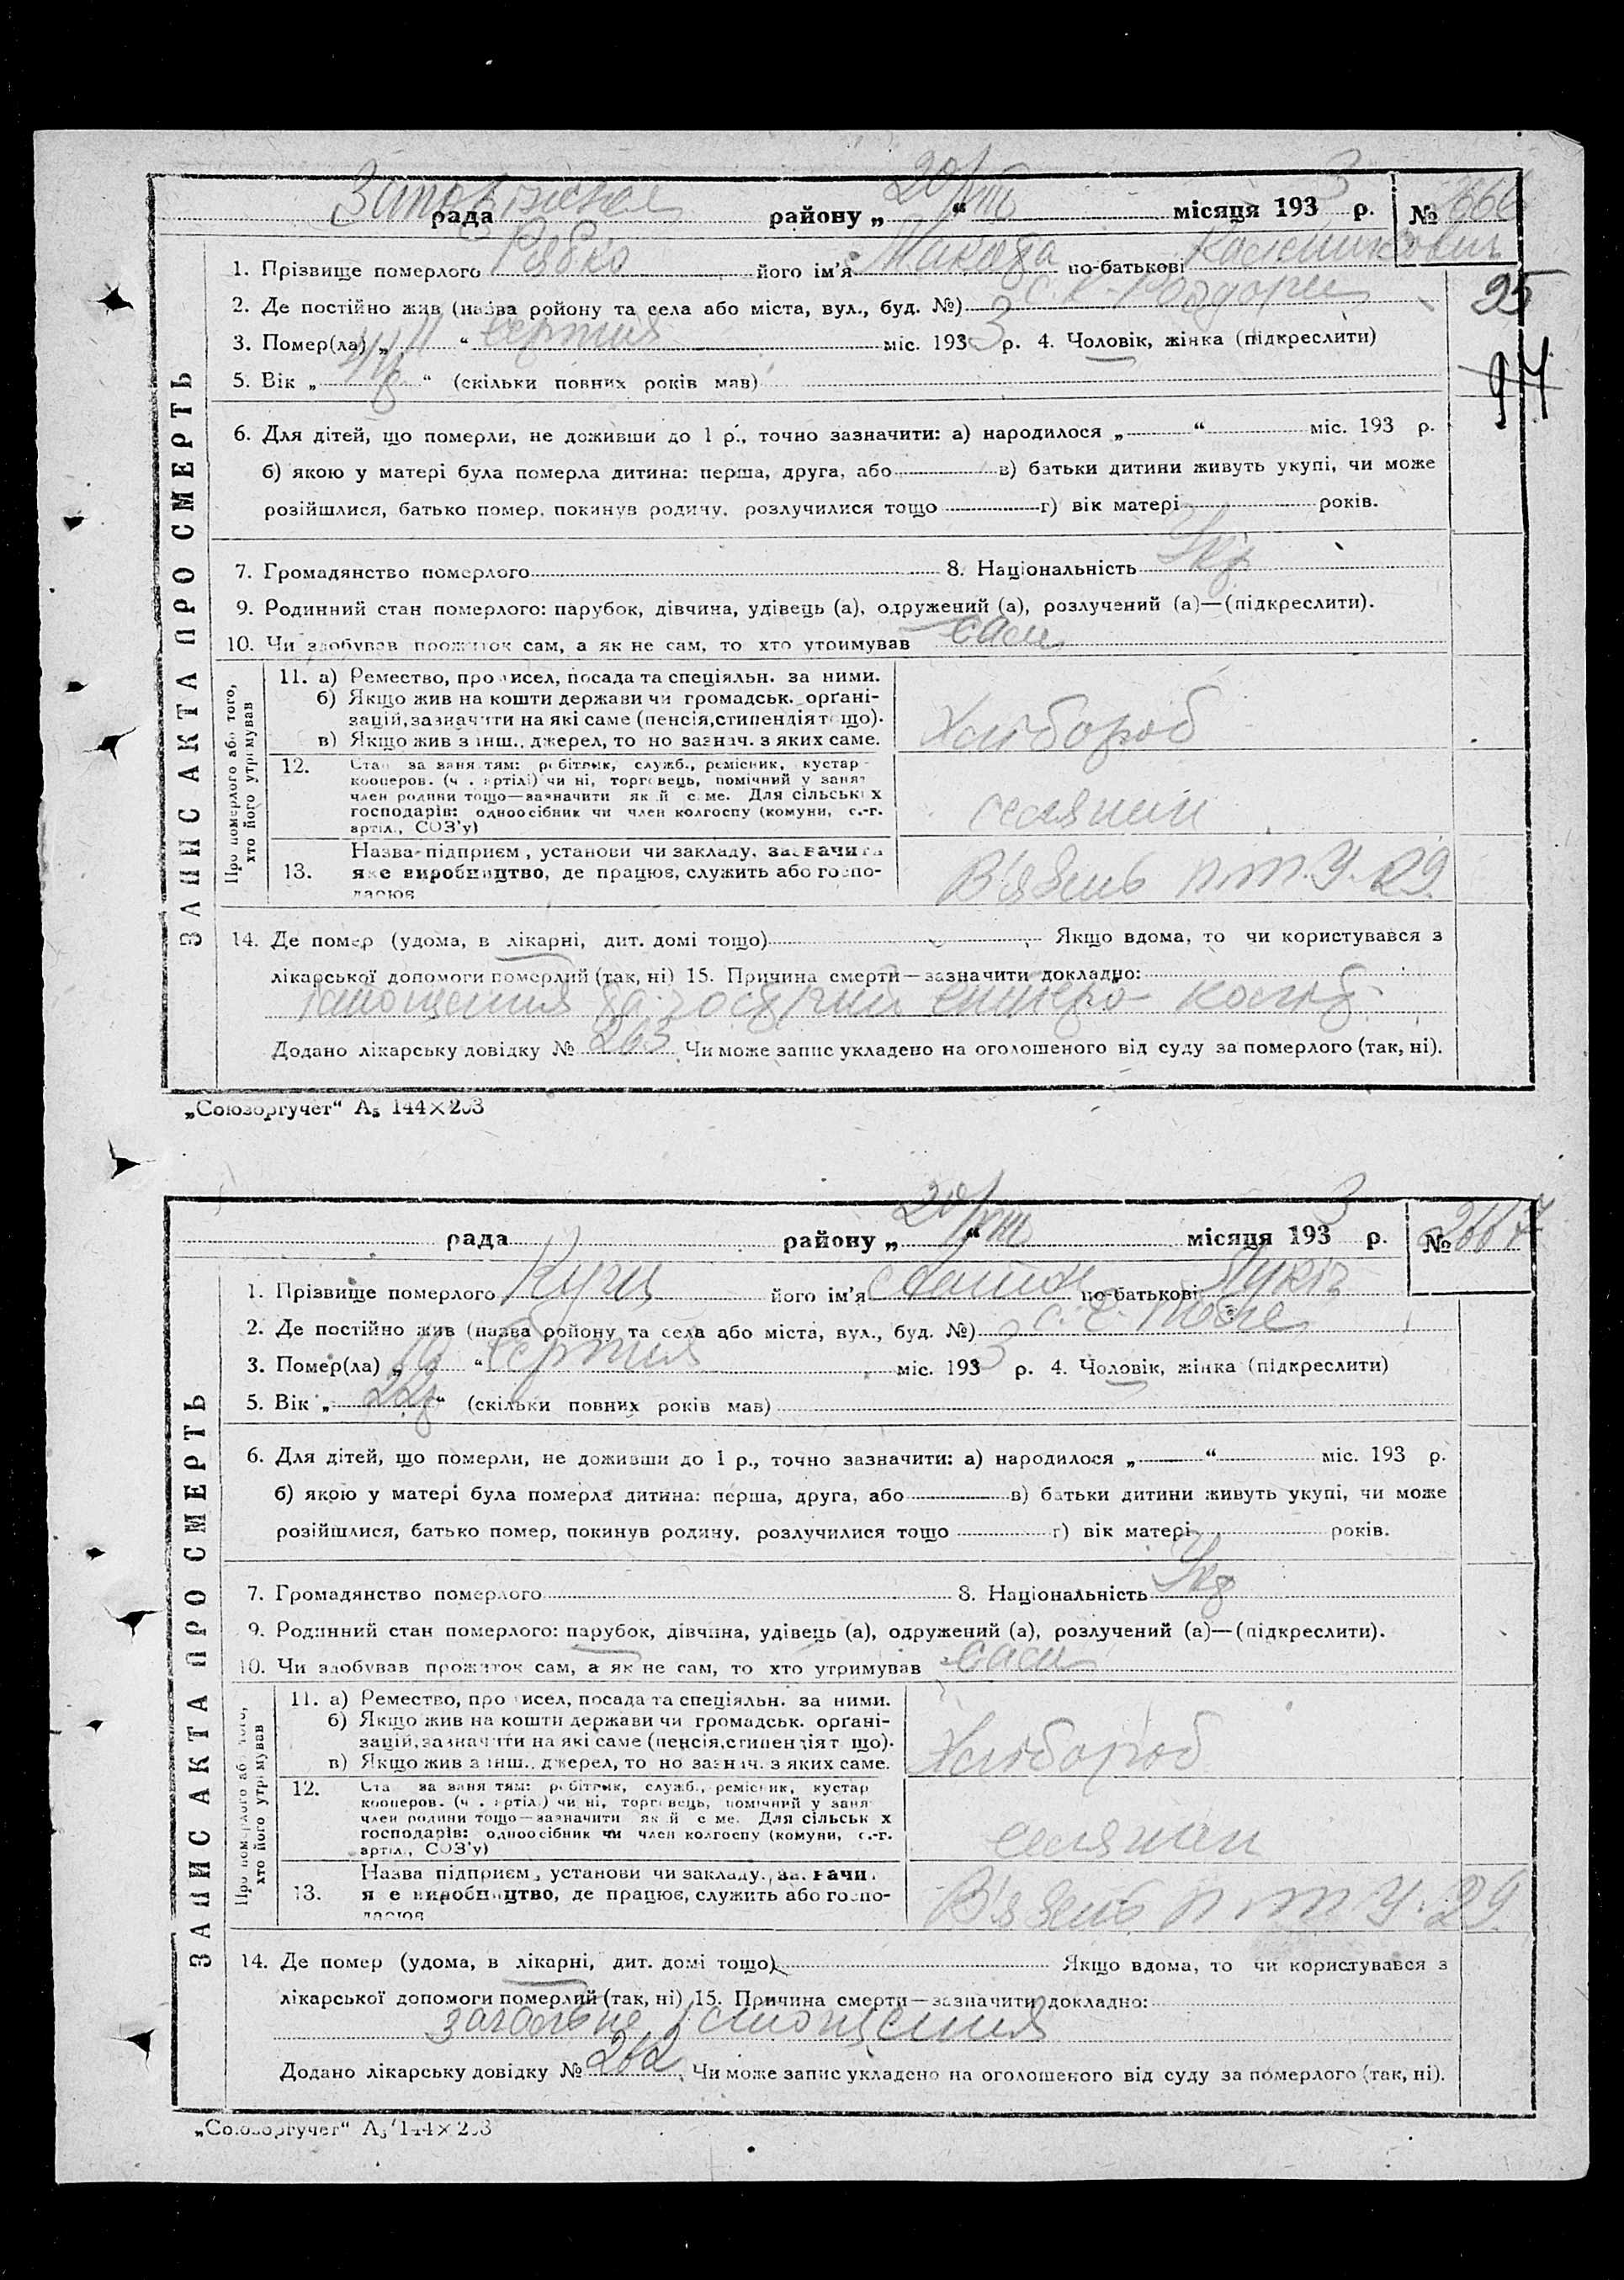 20/VIII 3
рада району „ “ місяця 193 р. №
1. Прізвище померлого Рябко його ім’я Макара по-батькові Калениковича
2. Де постійно жив (назва ройону та села або міста, вул., буд. №)
3. Помер(ла) „ “ серпня міс. 1933 р. 4. Чоловік, жінка (підкреслити)
5. Вік „ “ (скільки повних років мав)
95
94
ЗАПИС АКТА ПРО СМЕРТЬ
6. Для дітей, що померли, не доживши до 1 р., точно зазначити: а) народилося „ “ міс. 193 р.
б) якою у матері була померла дитина: перша, друга, або в) батьки дитини живуть укупі, чи може
розійшлися, батько помер, покинув родину, розлучилися тощо г) вік матері років.
7. Громадянство померлого 8. Національність Укр
9. Родинний стан померлого: парубок, дівчина, удівець (а), одружений (а), розлучений (а)—(підкреслити).
10. Чи здобував прожиток сам, а як не сам, то хто утримував сам
Про померлого або того, хто його утримував
11. а) Ремество, промисел, посада та спеціяльн. за ними.
б) Якщо жив на кошти держави чи громадськ. орґані-
зацій, зазначити на які саме (пенсія, стипендія тощо).
в) Якщо жив з інш. джерел, то но зазнач. з яких саме.
Хлібороб
12. Стан за занятям: робітник, служб., ремісник, кустар
кооперов. (ч. артілі) чи ні, торговець, помічний у занят
член родини тощо—зазначити який саме. Для сільських
господарів: одноосібник чи член колгоспу (комуни, с.-г.
артіл., СОЗ’у)
селянин
Назва підприєм., установи чи закладу, зазначити
13. яке виробництво, де працює, служить або госпо-
дарює
В'язень п.т.у. 29
14. Де помер (удома, в лікарні, дит. домі тощо) Якщо вдома, то чи користувався з
лікарської допомоги померлий (так, ні) 15. Причина смерти—зазначити докладно:
істощення та гострий ентеро-коліт
Додано лікарську довідку № 263 Чи може запис укладено на оголошеного від суду за померлого (так, ні).
„Союзоргучет“ А₅ 144×203
20/VIII 3
рада району „ “ місяця 193 р. № 2667
1. Прізвище померлого Куц його ім’я по-батькові Лукіч
2. Де постійно жив (назва ройону та села або міста, вул., буд. №)
3. Помер(ла) „ 19 “ серпня міс. 1933 р. 4. Чоловік, жінка (підкреслити)
5. Вік „ 22р “ (скільки повних років мав)
ЗАПИС АКТА ПРО СМЕРТЬ
6. Для дітей, що померли, не доживши до 1 р., точно зазначити: а) народилося „ “ міс. 193 р.
б) якою у матері була померла дитина: перша, друга, або в) батьки дитини живуть укупі, чи може
розійшлися, батько помер, покинув родину, розлучилися тощо г) вік матері років.
7. Громадянство померлого 8. Національність Укр
9. Родинний стан померлого: парубок, дівчина, удівець (а), одружений (а), розлучений (а)—(підкреслити).
10. Чи здобував прожиток сам, а як не сам, то хто утримував сам
Про померлого або того, хто його утримував
11. а) Ремество, промисел, посада та спеціяльн. за ними.
б) Якщо жив на кошти держави чи громадськ. орґані-
зацій, зазначити на які саме (пенсія, стипендія тощо).
в) Якщо жив з інш. джерел, то но зазнач. з яких саме.
Хлібороб
12. Стан за занятям: робітник, служб., ремісник, кустар
кооперов. (ч. артіл.) чи ні, торговець, помічний у заня
член родини тощо—зазначити який саме. Для сільських
господарів: одноосібник чи член колгоспу (комуни, с.-г.
артіл., СОЗ’у)
селянин
Назва підприєм., установи чи закладу, зазначи
13. яке виробництво, де працює, служить або госпо-
дарює
В'язень п т у. 29
14. Де помер (удома, в лікарні, дит. домі тощо) Якщо вдома, то чи користувався з
лікарської допомоги померлий (так, ні) 15. Причина смерти—зазначити докладно:
загальне істощення
Додано лікарську довідку № 262 Чи може запис укладено на оголошеного від суду за померлого (так, ні).
„Союзоргучет“ А₅ 144×203